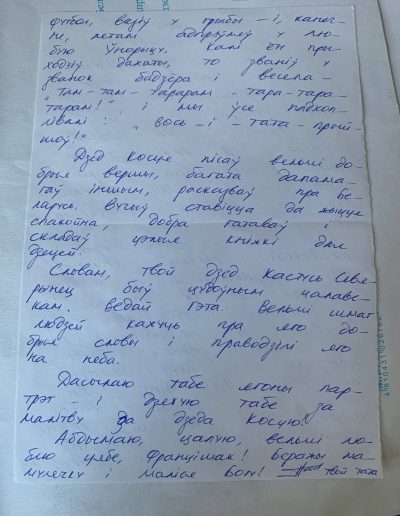 футбол, везці ў грыбы – і, канеч-
не, летам адпраўляў у лю-
бую ўпорыцу. Калі ён пры-
ходзіў дахаты, то званіў у
званок бадзёра і весела –
"там-там-тарарам – тара-тара-
тарам!" і мы ўсе падхоп-
лівалі: "вось – і – тата – прый-
шоў!"
Дзед Косця пісаў вельмі до-
брыя вершы, багата дапама-
гаў іншым, расказваў пра Бе-
ларусь, вучыў ставіцца да жыцця
спакойна, добра гатаваў і
складаў цэлыя кніжкі для
дзяцей.
Словам, твой дзед Кастусь Севя-
рынец быў цудоўным чалаве-
кам. Ведай гэта. Вельмі шмат
людзей кажуць пра яго до-
брыя словы і праводзілі яго
на неба.
Дасылаю табе ягоны пар-
трэт – ! Дзякую табе за
малітву за дзеда Косцю!
Абдымаю, цалую, вельмі лю-
блю цябе, Францішак! Беражы ма-
мулечку і маліся Богу! твой тата
4810431026762